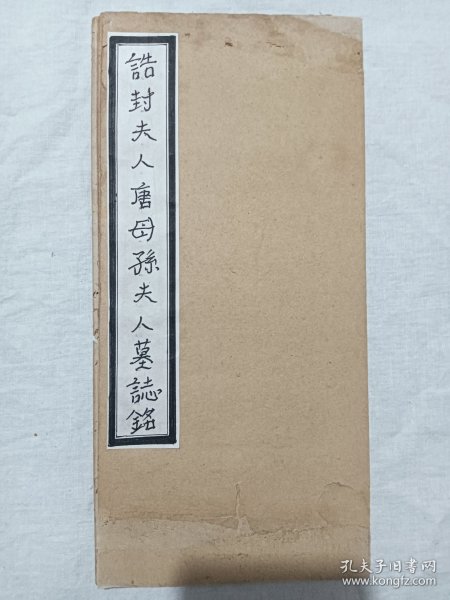 誥封夫人唐母孫夫人墓誌銘
孔夫子旧书网
www.kongfz.com